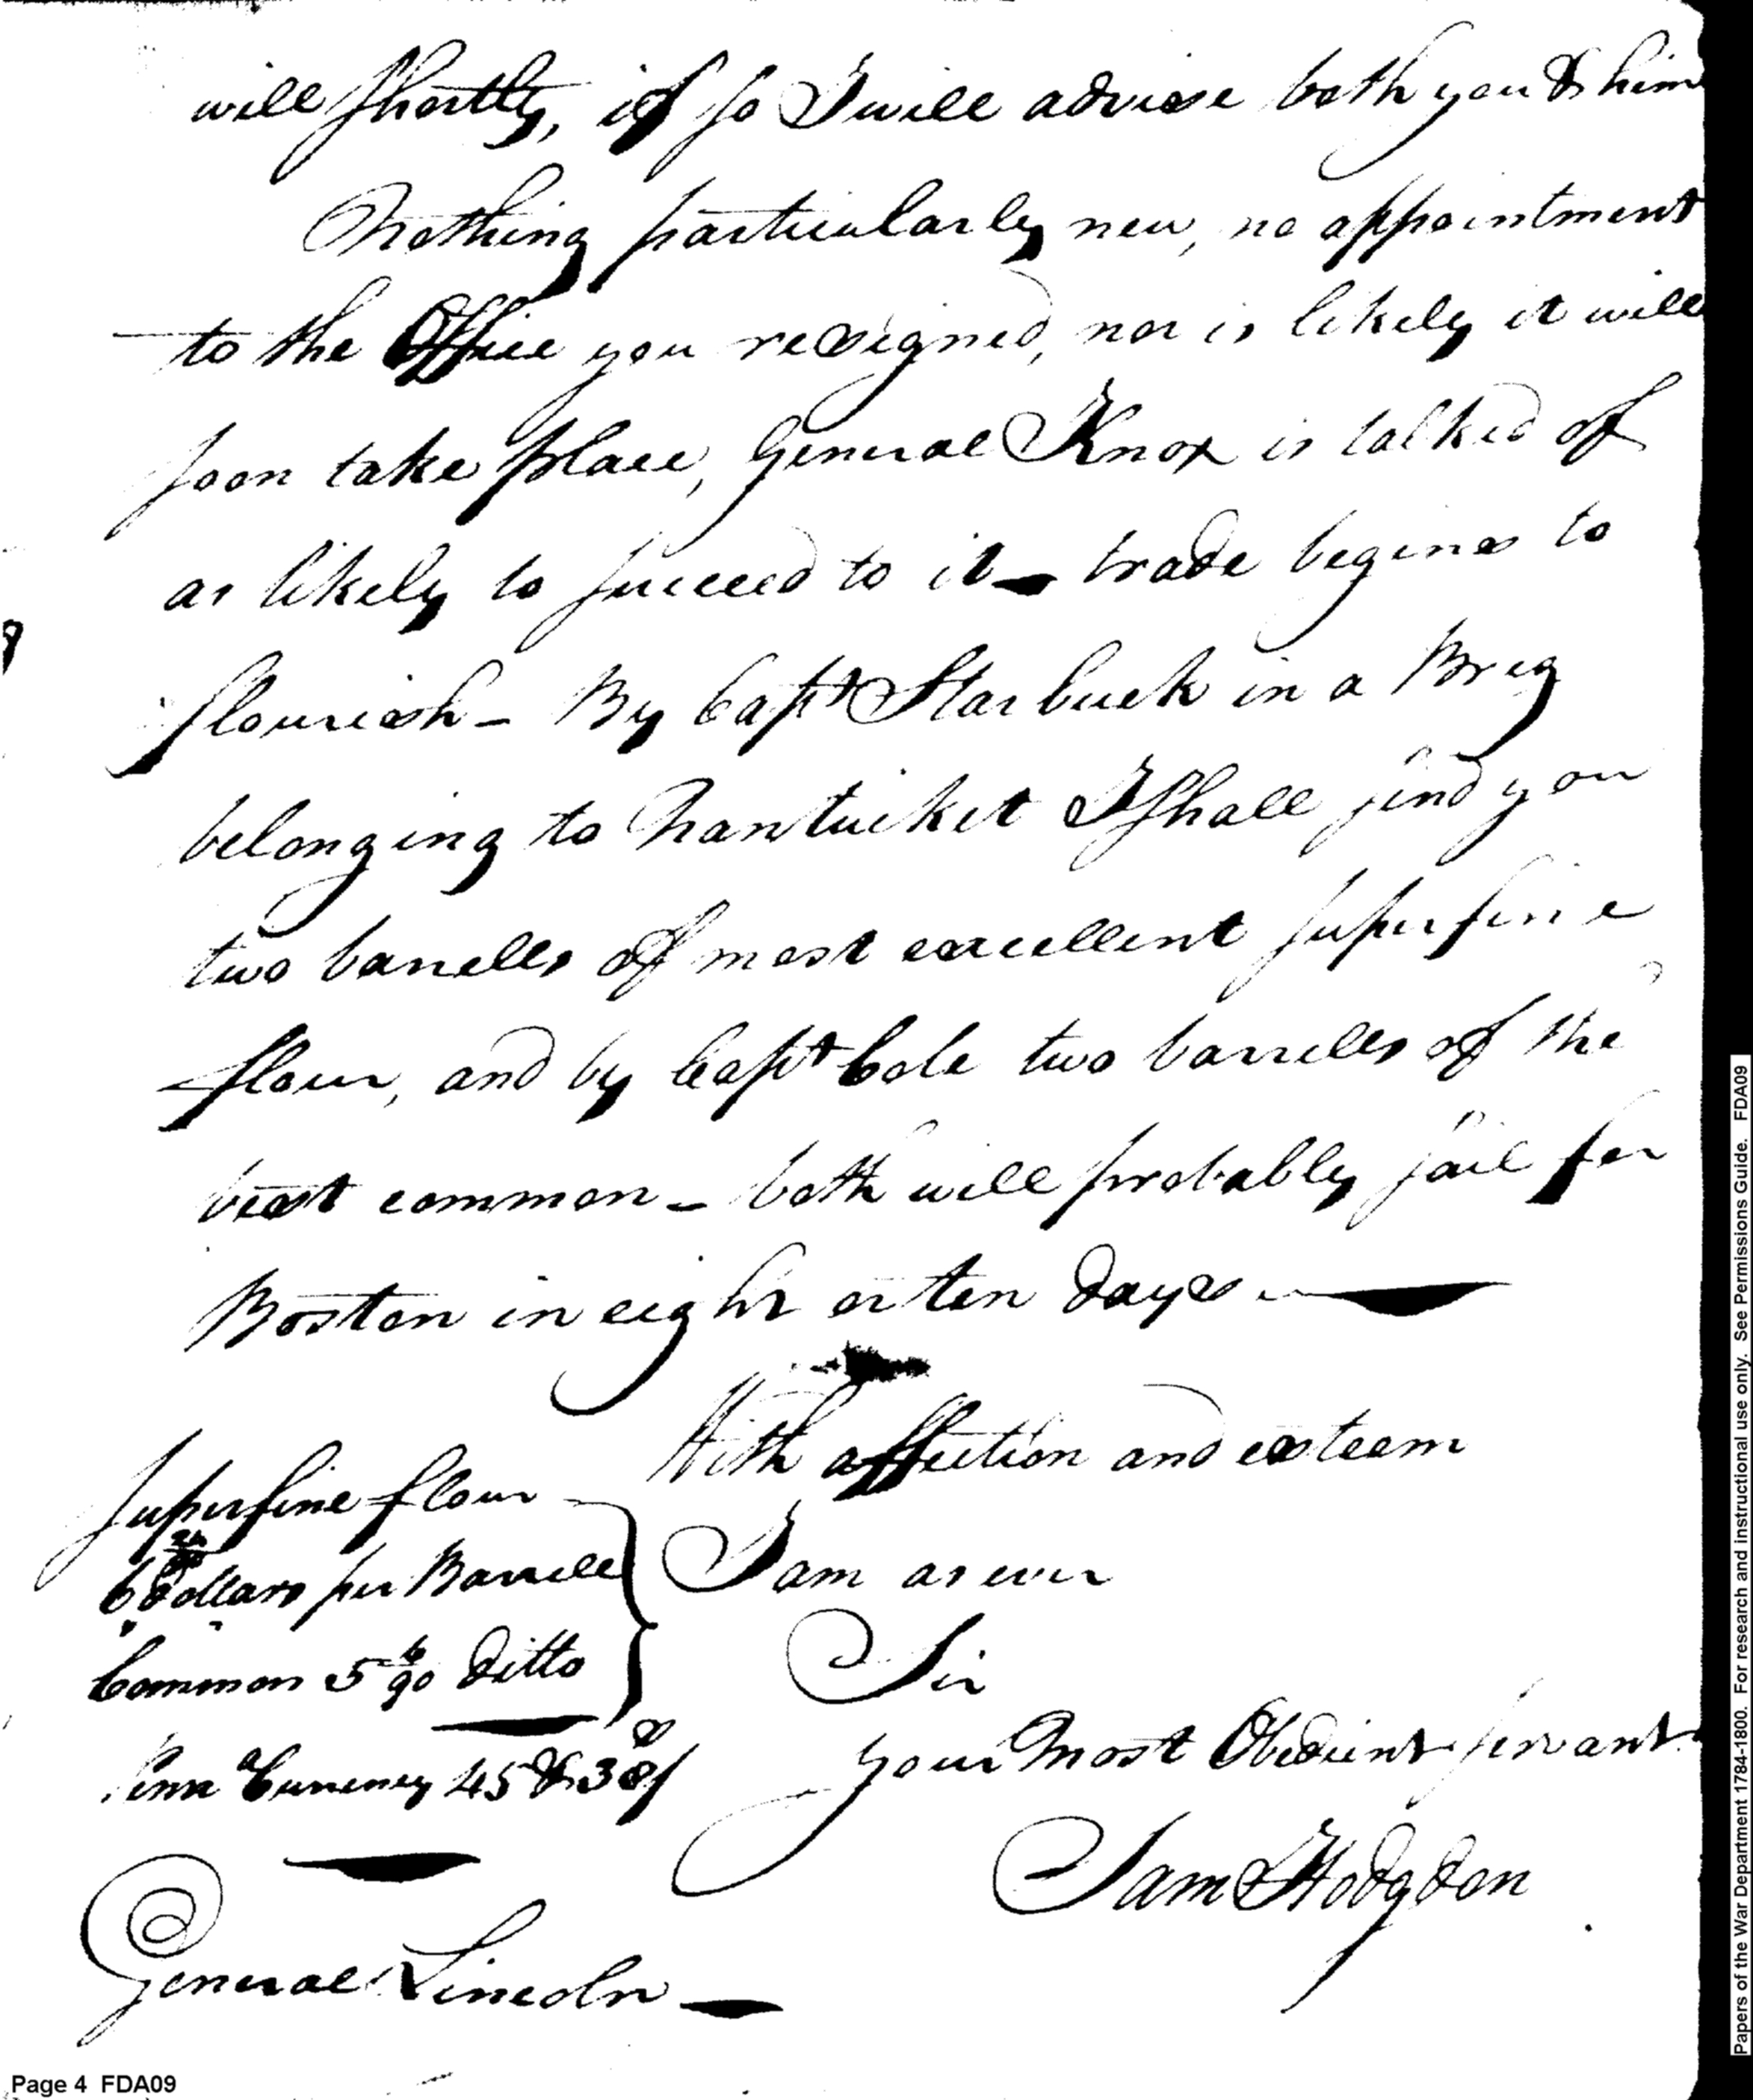 will shortly, if so I will advise both you & him
Nothing particularly new, no appointment
to the Office you resigned, nor is likely it will
soon take place, General Knox is talked of
as likely to succeed to it - trade begins to
flourish - By Capt Starbuck in a Brig
belonging to Nantucket I shall send you
two barrells of most excellent superfine
flour, and by Capt Cole two barrells of the
best common - both will probably sail for
Boston in eight or ten days -
With affection and esteem
Superfine flour
I am as ever
6 dollars per Barrell
Sir
Common 5 6/90 ditto
Your Most Obedient servant
Penna Currency 45 & 38/
Sam Hodgdon
General Lincoln -
Page 4 FDA09
Papers of the War Department 1784-1800. For research and instructional use only. See Permissions Guide. FDA09